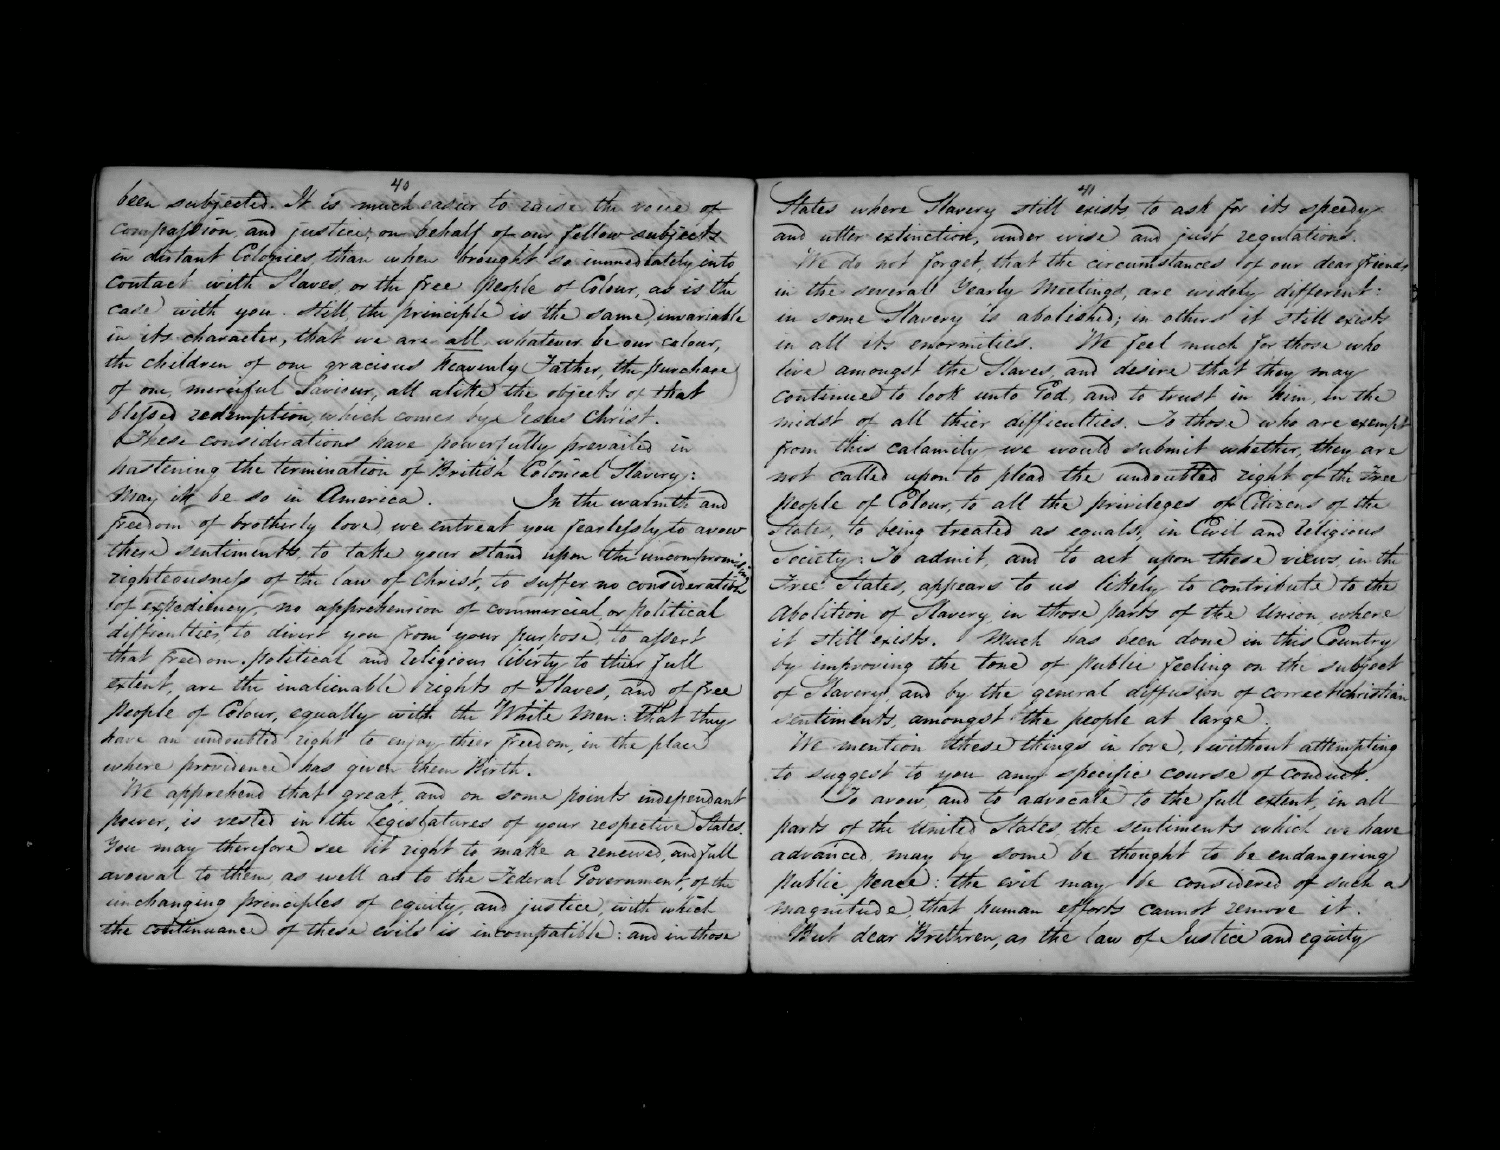 40
been subjected. It is much easier to raise the voice of
compassion, and justice, on behalf of our fellow subjects
in distant Colonies, than when brought so immediately into
contact with Slaves, or the free people of Colour, as is the
case with you. Still the principle is the same, invariable
in its character, that we are all whatever be our colour,
the children of one gracious Heavenly Father, the purchase
of one, merciful Saviour, all alike the objects of that
blessed redemption, which comes by Jesus Christ.
These considerations have powerfully prevailed in
hastening the termination of British Colonial Slavery:
May it be so in America. In the warmth and
freedom of brotherly love we entreat you fearlessly, to avow
these sentiments, to take your stand upon the uncompromising
righteousness of the law of Christ, to suffer no consideration
of expediency, no apprehension of commercial, or political
difficulties, to divert you from your purpose, to assert
that freedom, political and religious liberty to thier full
extent, are the inalienable rights of Slaves, and of free
people of Colour, equally with the White men: that they
have an undoubted right to enjoy their freedom, in the place
where providence has given them Birth.
We apprehend that great, and on some points independant
power, is vested in the Legislatures of your respective States.
You may therefore see it right to make a renewed, and full
avowal to them, as well as to the Federal Government, of the
unchanging principles of equity, and justice, with which
the continuance of these evils is incompatible: and in those
41
States where Slavery still exists to ask for its speedy
and utter extinction, under wise and just regulations.
We do not forget, that the circumstances of our dear friends
in the several Yearly Meetings, are widely different:
in some Slavery is abolished; in others it still exists
in all its enormities. We feel much for those who
live amongst the Slaves, and desire that they may
continued to look unto God, and to trust in him, in the
midst of all thier difficulties. To those who are exempt
from this calamity we would submit whether, they are
not called upon to plead the undoubted right of the Free
people of Colour, to all the privileges of Citizens of the
State, to being treated as equals, in Civil and religious
Society: To admit, and to act upon these views, in the
Free States, appears to us likely to contribute to the
Abolition of Slavery, in those parts of the Union, where
it still exists. Much has been done in this Country
by improving the tone of public feeling on the subject
of Slavery, and by the general diffusion of correct christian
sentiments, amongst the people at large.
We mention these things in love, without attempting
to suggest to you any specific course of conduct.
To avow, and to advocate to the full extent, in all
parts of the United States, the sentiments which we have
advanced, may by some be thought to be endangering
public peace: the evil may be considered of such a
magnitude, that human efforts cannot remove it.
But dear Brethren, as the law of Justice and equity